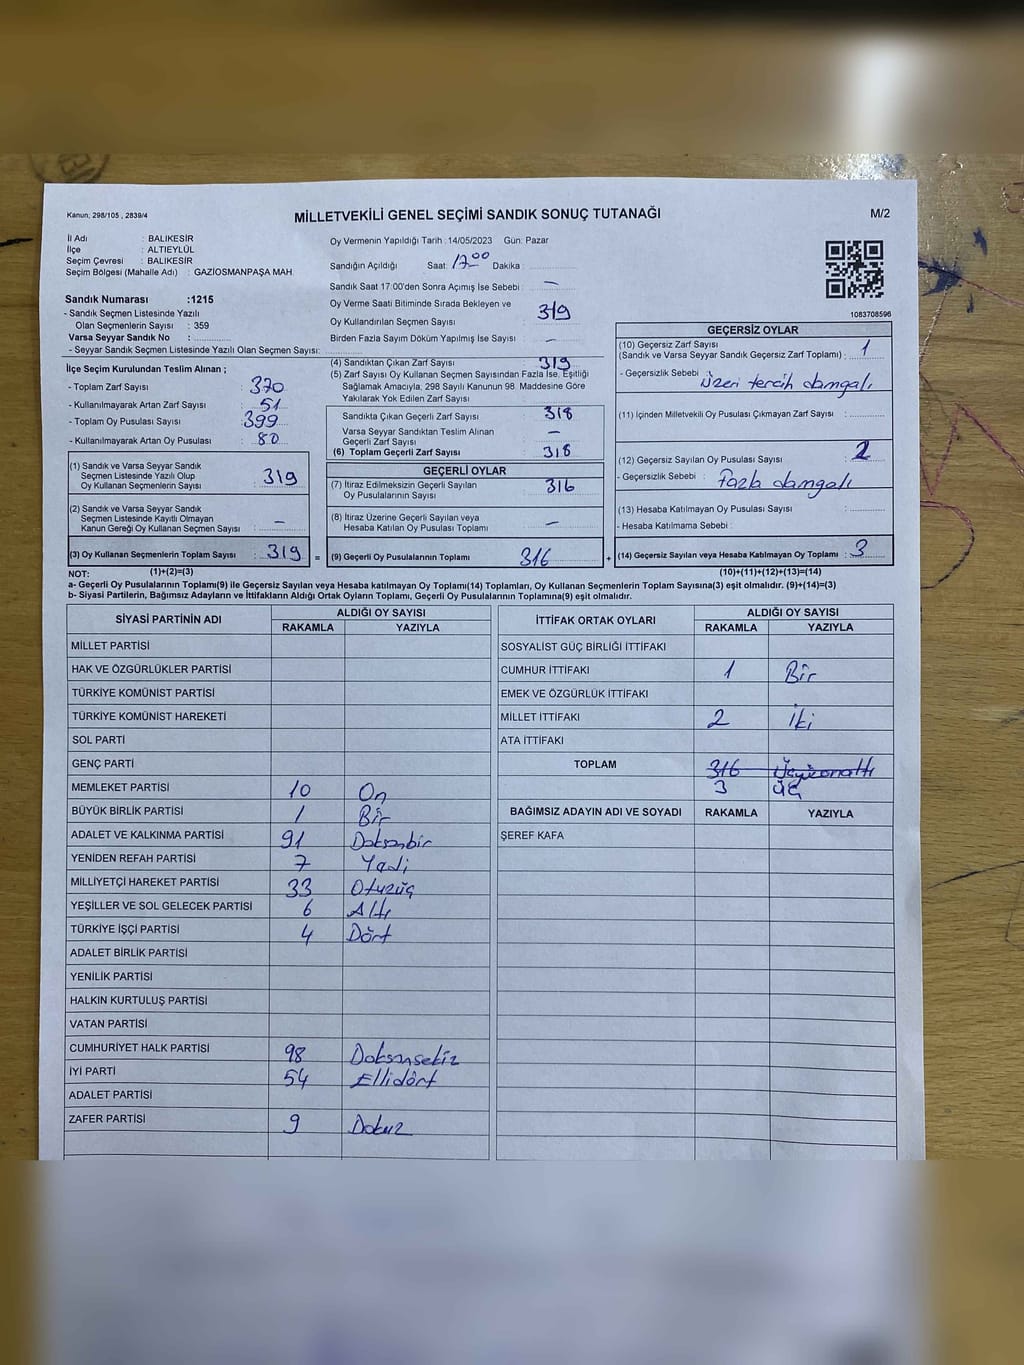 Kanun; 298/105 , 2839/4
MİLLETVEKİLİ GENEL SEÇİMİ SANDIK SONUÇ TUTANAĞI
M/2
İl Adı : BALIKESİR
İlçe : ALTIEYLÜL
Seçim Çevresi : BALIKESİR
Seçim Bölgesi (Mahalle Adı) : GAZİOSMANPAŞA MAH.
Sandık Numarası :1215
- Sandık Seçmen Listesinde Yazılı
Olan Seçmenlerin Sayısı : 359
Varsa Seyyar Sandık No :
- Seyyar Sandık Seçmen Listesinde Yazılı Olan Seçmen Sayısı:
Oy Vermenin Yapıldığı Tarih :14/05/2023 Gün: Pazar
Sandığın Açıldığı Saat: 17.00 Dakika :
Sandık Saat 17:00'den Sonra Açılmış İse Sebebi : —
Oy Verme Saati Bitiminde Sırada Bekleyen ve
Oy Kullandırılan Seçmen Sayısı : 319
Birden Fazla Sayım Döküm Yapılmış İse Sayısı : —
1083708596
İlçe Seçim Kurulundan Teslim Alınan ;
- Toplam Zarf Sayısı : 370
- Kullanılmayarak Artan Zarf Sayısı : 51
- Toplam Oy Pusulası Sayısı : 399
- Kullanılmayarak Artan Oy Pusulası : 80
(1) Sandık ve Varsa Seyyar Sandık
Seçmen Listesinde Yazılı Olup
Oy Kullanan Seçmenlerin Sayısı : 319
(2) Sandık ve Varsa Seyyar Sandık
Seçmen Listesinde Kayıtlı Olmayan
Kanun Gereği Oy Kullanan Seçmen Sayısı : —
(3) Oy Kullanan Seçmenlerin Toplam Sayısı : 319
(1)+(2)=(3)
(4) Sandıktan Çıkan Zarf Sayısı : 319
(5) Zarf Sayısı Oy Kullanan Seçmen Sayısından Fazla İse, Eşitliği
Sağlamak Amacıyla, 298 Sayılı Kanunun 98. Maddesine Göre
Yakılarak Yok Edilen Zarf Sayısı :
Sandıkta Çıkan Geçerli Zarf Sayısı : 318
Varsa Seyyar Sandıktan Teslim Alınan
Geçerli Zarf Sayısı : —
(6) Toplam Geçerli Zarf Sayısı : 318
GEÇERLİ OYLAR
(7) İtiraz Edilmeksizin Geçerli Sayılan
Oy Pusulalarının Sayısı : 316
(8) İtiraz Üzerine Geçerli Sayılan veya
Hesaba Katılan Oy Pusulası Toplamı : —
= (9) Geçerli Oy Pusulalarının Toplamı : 316
GEÇERSİZ OYLAR
(10) Geçersiz Zarf Sayısı
(Sandık ve Varsa Seyyar Sandık Geçersiz Zarf Toplamı) : 1
- Geçersizlik Sebebi : Üzeri tercih damgalı
(11) İçinden Milletvekili Oy Pusulası Çıkmayan Zarf Sayısı :
(12) Geçersiz Sayılan Oy Pusulası Sayısı : 2
- Geçersizlik Sebebi : Fazla damgalı
(13) Hesaba Katılmayan Oy Pusulası Sayısı :
- Hesaba Katılmama Sebebi :
+ (14) Geçersiz Sayılan veya Hesaba Katılmayan Oy Toplamı : 3
(10)+(11)+(12)+(13)=(14)
NOT:
a- Geçerli Oy Pusulalarının Toplamı(9) ile Geçersiz Sayılan veya Hesaba katılmayan Oy Toplamı(14) Toplamları, Oy Kullanan Seçmenlerin Toplam Sayısına(3) eşit olmalıdır. (9)+(14)=(3)
b- Siyasi Partilerin, Bağımsız Adayların ve İttifakların Aldığı Ortak Oyların Toplamı, Geçerli Oy Pusulalarının Toplamına(9) eşit olmalıdır.
SİYASİ PARTİNİN ADI ALDIĞI OY SAYISI
RAKAMLA YAZIYLA
MİLLET PARTİSİ
HAK VE ÖZGÜRLÜKLER PARTİSİ
TÜRKİYE KOMÜNİST PARTİSİ
TÜRKİYE KOMÜNİST HAREKETİ
SOL PARTİ
GENÇ PARTİ
MEMLEKET PARTİSİ 10 On
BÜYÜK BİRLİK PARTİSİ 1 Bir
ADALET VE KALKINMA PARTİSİ 91 Doksanbir
YENİDEN REFAH PARTİSİ 7 Yedi
MİLLİYETÇİ HAREKET PARTİSİ 33 Otuzüç
YEŞİLLER VE SOL GELECEK PARTİSİ 6 Altı
TÜRKİYE İŞÇİ PARTİSİ 4 Dört
ADALET BİRLİK PARTİSİ
YENİLİK PARTİSİ
HALKIN KURTULUŞ PARTİSİ
VATAN PARTİSİ
CUMHURİYET HALK PARTİSİ 98 Doksansekiz
İYİ PARTİ 54 Ellidört
ADALET PARTİSİ
ZAFER PARTİSİ 9 Dokuz
İTTİFAK ORTAK OYLARI ALDIĞI OY SAYISI
RAKAMLA YAZIYLA
SOSYALİST GÜÇ BİRLİĞİ İTTİFAKI
CUMHUR İTTİFAKI 1 Bir
EMEK VE ÖZGÜRLÜK İTTİFAKI
MİLLET İTTİFAKI 2 İki
ATA İTTİFAKI
TOPLAM 316 Üçyüzonaltı
3 üç
BAĞIMSIZ ADAYIN ADI VE SOYADI RAKAMLA YAZIYLA
ŞEREF KAFA